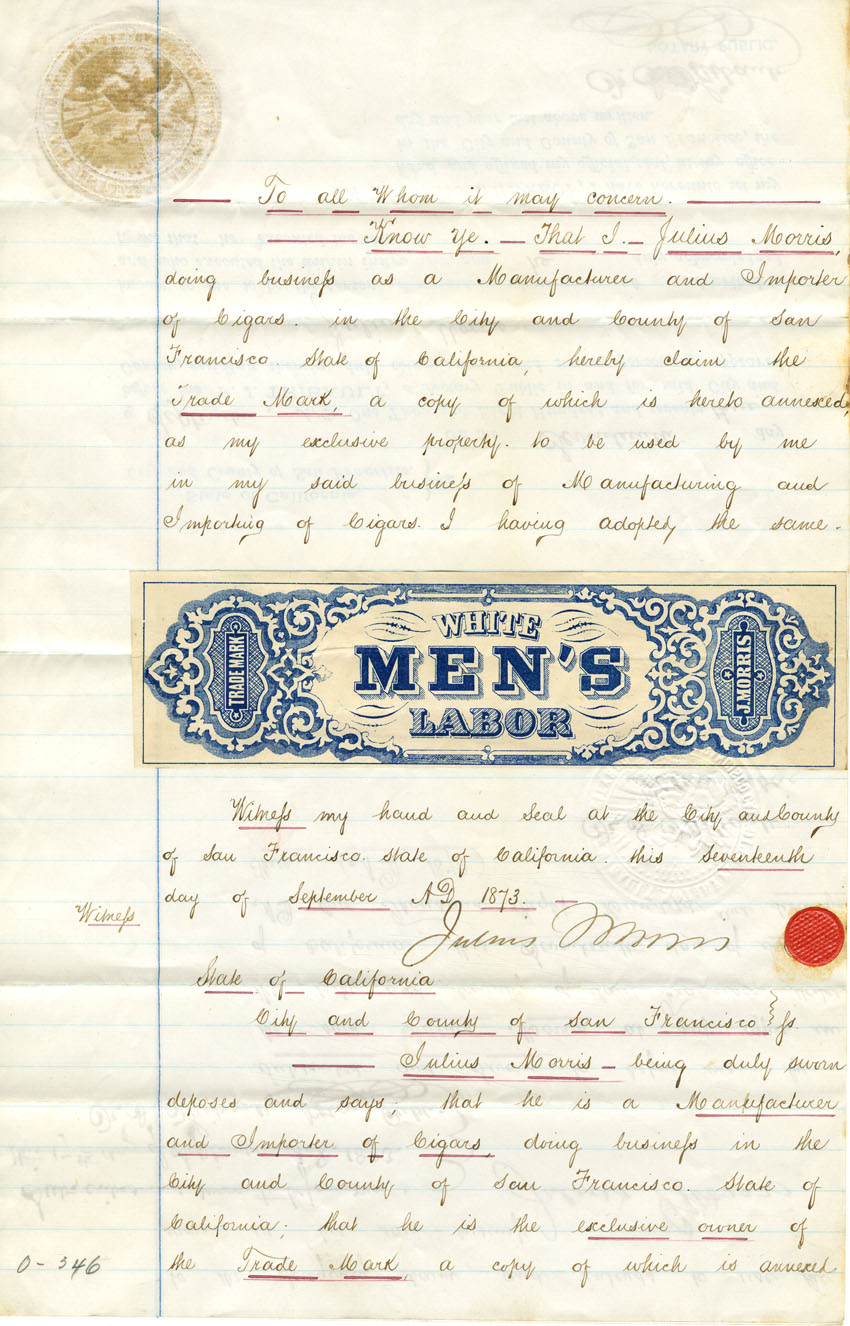 To all Whom it may concern.
Know Ye. That I. Julius Morris,
doing business as a Manufacturer and Importer
of Cigars. in the City and County of San
Francisco. State of California, hereby claim the
Trade Mark, a copy of which is hereto annexed,
as my exclusive property. to be used by me
in my said business of Manufacturing and
Importing of Cigars. I having adopted, the same.
TRADE MARK
WHITE
MEN'S
LABOR
J. MORRIS
Witness my hand and Seal at the City and County
of San Francisco. State of California. this Seventeenth
day of September AD 1873.
Witness
Julius Morris
State of California
City and County of San Francisco } ss.
Julius Morris being duly sworn
deposes and says; that he is a Manufacturer
and Importer of Cigars, doing business in the
City and County of San Francisco. State of
California; that he is the exclusive owner of
the Trade Mark, a copy of which is annexed
O-346